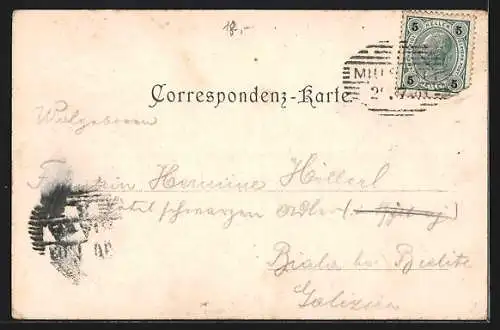 18,-
5 HELLER 5
5 5
MILL
Correspondenz-Karte.
Wohlgeboren
Fräulein Hermine Hillerl
Hotel schwarzen Adler
Biala bei Bielitz
Galizien